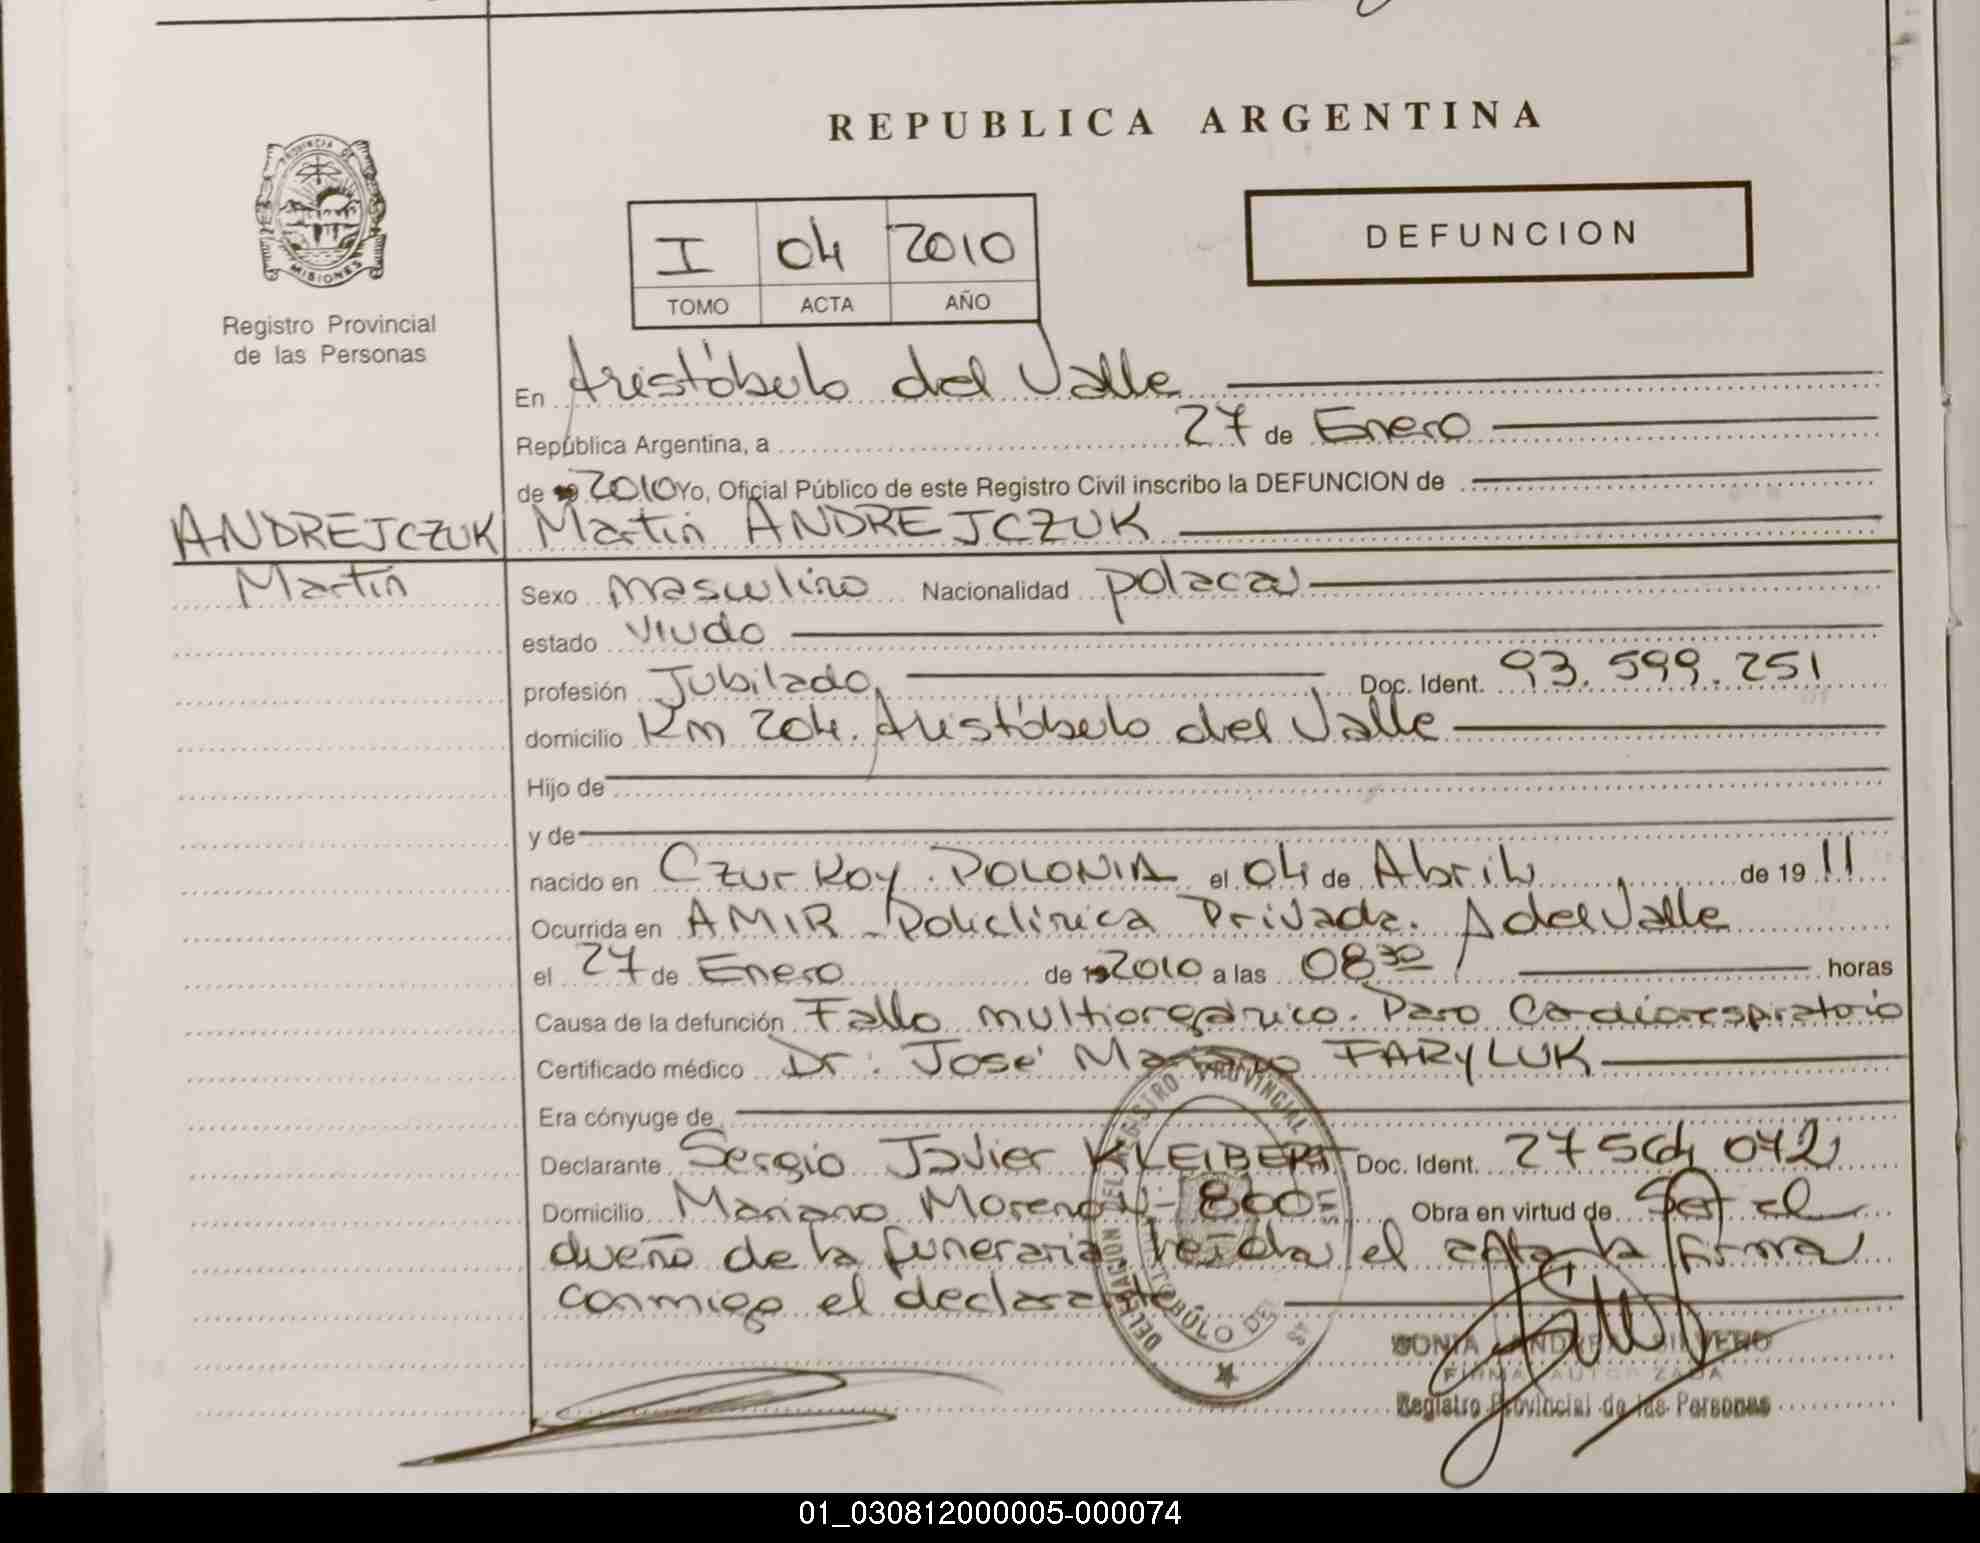 REPUBLICA ARGENTINA
PROVINCIA DE
MISIONES
Registro Provincial
de las Personas
I 04 2010
TOMO ACTA AÑO
DEFUNCION
En Aristóbulo del Valle
República Argentina, a 27 de Enero
de 2010 Yo, Oficial Público de este Registro Civil inscribo la DEFUNCION de
ANDREJCZUK Martín ANDREJCZUK
Martín
Sexo masculino Nacionalidad polaca
estado viudo
profesión Jubilado, Doc. Ident. 93.599.251
domicilio Km 204. Aristóbulo del Valle
Hijo de
y de
nacido en Czurkoy. POLONIA el 04 de Abril de 19 11
Ocurrida en AMIR - Policlínica Privada. A del Valle
el 27 de Enero de 2010 a las 08 30 horas
Causa de la defunción Fallo multiorgánico. Paro Cardiorespiratorio
Certificado médico Dr: José Mariano FARYLUK
Era cónyuge de
Declarante Sergio Javier KLEIBERT Doc. Ident. 27 564 072
Domicilio Mariano Moreno - 800 Obra en virtud de Ser el
dueño de la funeraria leída el acta la firma
conmigo el declarante
REGISTRO PROVINCIAL DE LAS
SONIA ANDREA SILVERO
FIRMA AUTORIZADA
Registro Provincial de las Personas
01_030812000005-000074